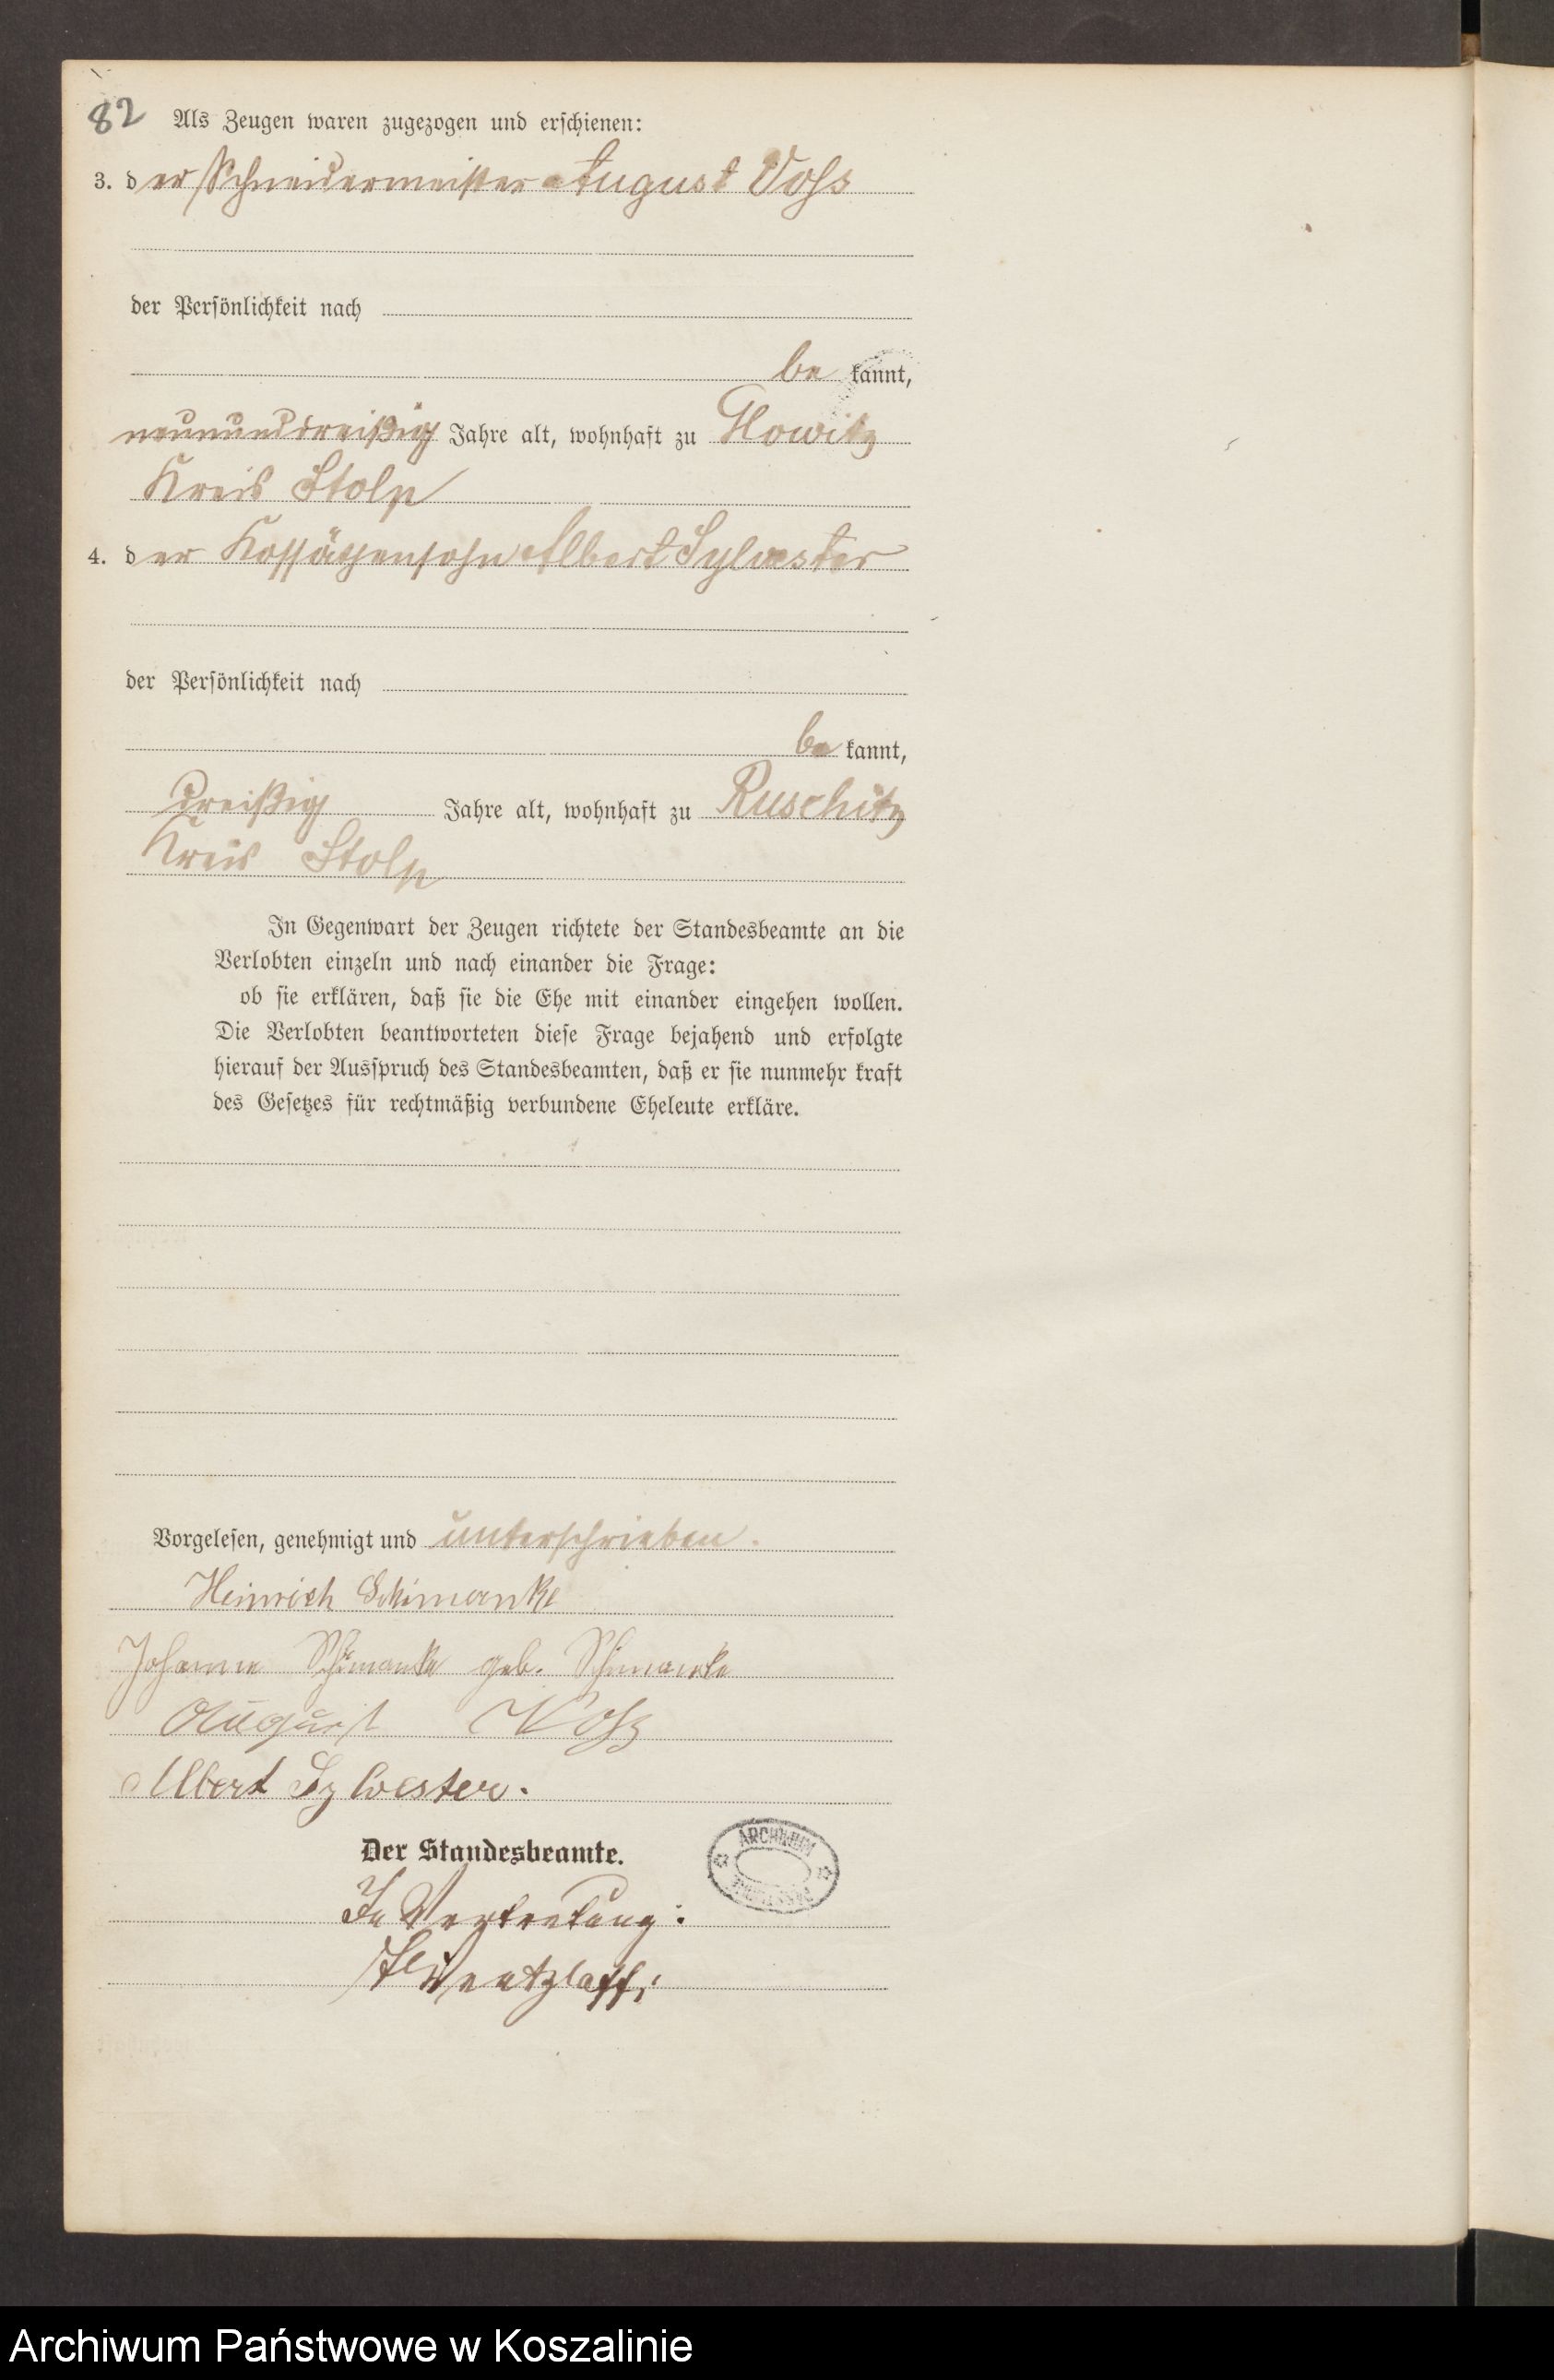 82 Als Zeugen waren zugezogen und erschienen:
3. der Schneidermeister August Voss
der Persönlichkeit nach
be kannt,
neununddreißig Jahre alt, wohnhaft zu Glowitz
Kreis Stolp
4. der Kossäthensohn Albert Sylvester
der Persönlichkeit nach
be kannt,
dreißig Jahre alt, wohnhaft zu Ruschitz
Kreis Stolp
In Gegenwart der Zeugen richtete der Standesbeamte an die
Verlobten einzeln und nach einander die Frage:
ob sie erklären, daß sie die Ehe mit einander eingehen wollen.
Die Verlobten beantworteten diese Frage bejahend und erfolgte
hierauf der Ausspruch des Standesbeamten, daß er sie nunmehr kraft
des Gesetzes für rechtmäßig verbundene Eheleute erkläre.
Vorgelesen, genehmigt und unterschrieben.
Heinrich Schimanke
Johanne Schimanke geb. Schimanke
August Voß
Albert Sylvester.
Der Standesbeamte.
ARCHIWUM
In Vertretung:
Wentzlaff
Archiwum Państwowe w Koszalinie